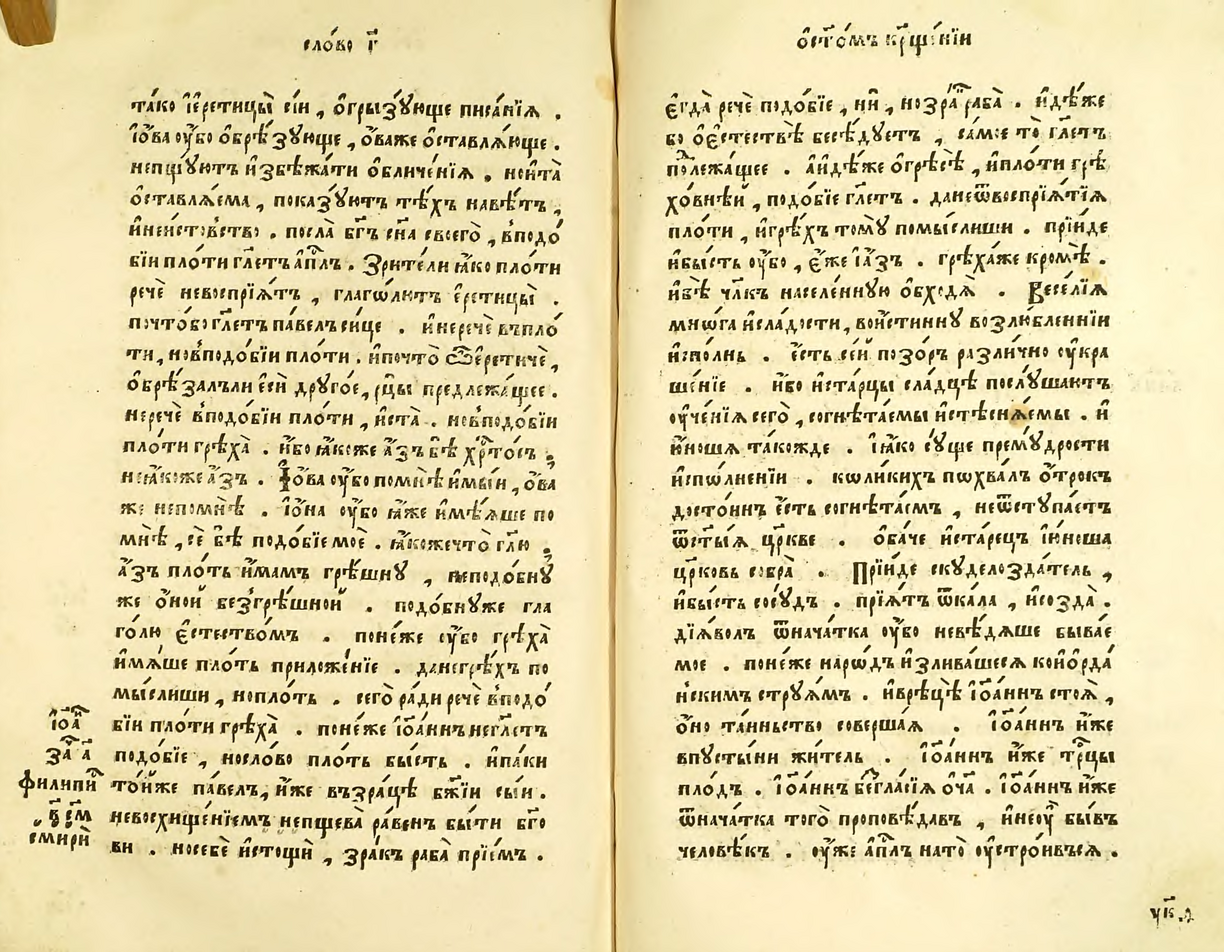 сло́во г҃
та́ко і҆ерети́цы сі́и , ѻ҆грызꙋ́юще писа́нїѧ .
і҆ѻ҆́ва оу҆́бо ѻ҆брѣ́зꙋюще , ѻ҆́важе ѡ҆ставлѧ́юще .
непщꙋ́ютъ и҆збѣжа́ти ѻ҆бличе́нїѧ . нои҆та̀
ѻ҆ставлѧ́ема , пока́зꙋютъ тѣ́хъ навѣ́тъ ,
и҆неи́стовство . посла̀ бг҃ъ сн҃а своего̀ , вподо́
бїи пло́ти гл҃етъ а҆пⷭ҇лъ . Зри́тели ꙗ҆́ко пло́ти
речѐ невоспрїѧ́тъ , глаго́лютъ є҆рети́цы .
почто́бо гл҃етъ па́велъ си́це . и҆неречѐ въпло́
ти , новподо́бїи пло́ти . и҆почто̀ ѽ є҆ре́тиче ,
ѻ҆брѣ́залъли є҆сѝ друго́е , рцы̀ предлежа́щее .
неречѐ вподо́бїи пло́ти , и҆ста̀ . новподо́бїи
пло́ти грѣха̀ . и҆́бо ꙗ҆́коже а҆́зъ бѣ̀ хрⷭ҇то́съ ,
ноꙗ҆́коже а҆́зъ . І҆ѻ҆́ва оу҆́бо помнѣ̀ и҆мы́и , ѻ҆́ва
же непомнѣ̀ . і҆ѻ҆́на оу҆́бо ꙗ҆́же и҆мѣ́ѧше по
мнѣ̀ , сѐ бѣ̀ подо́бїе моѐ . ꙗ҆́кожечто̀ гл҃ю ,
а҆́зъ пло́ть и҆́мамъ грѣ́шнꙋ , неподо́бнꙋ
же ѻ҆́ной безгрѣ́шной . подо́бнꙋже гла
го́лю є҆стество́мъ . поне́же оу҆́бо грѣха̀
и҆мѧ́ше пло́ть приложе́нїе . данегрѣ́хъ по
мы́слиши , нопло́ть . сего̀ ра́ди речѐ вподо́
бїи пло́ти грѣха̀ . поне́же і҆ѻ҆а́ннъ негл҃етъ
подо́бїе , носло́во пло́ть бы́сть . и҆па́ки
то́йже па́велъ , и҆́же възра́цѣ бж҃їи сы́и .
невосхище́нїемъ непщева̀ ра́венъ бы́ти бг҃о
ви . носебѐ и҆стощѝ , зра́къ раба̀ прїе́мъ .
і҆ѻ҆а́
за҆ а҃
филипи
семирѝ
ѻ҆ст҃о́мъ кр҃ще́нїи
є҆гда̀ речѐ подо́бїе , нѝ , нозра́ раба̀ . и҆дѣ́же
бо ѻ҆є҆стествѣ̀ бесѣ́дꙋетъ , са́мое то̀ гл҃етъ
по́лежащее . а҆идѣ́же ѻ҆грѣсѣ̀ , и҆пло́ти грѣ
хо́внѣи , подо́бїе гл҃етъ . данеѿвоспрїѧ́тїѧ
пло́ти , и҆грѣ́хъ томꙋ̀ помы́слиши . прїи́де
и҆бы́сть оу҆́бо , є҆́же і҆а҆́зъ . грѣха́же кромѣ̀ .
и҆бѣ̀ чл҃къ населе́ннꙋю ѻ҆бходѧ̀ . Весе́лїѧ
мнѡ́га и҆сла́дости , вои́стиннꙋ возлю́бленнїи
и҆спо́лнь . є҆́сть се́й позо́ръ разли́чно оу҆кра
ше́нїе . и҆́бо и҆ста́рцы сла́дцѣ послꙋ́шаютъ
оу҆че́нїѧ сего̀ , согнѣта́емы и҆стѣснѧ́емы . и҆
ю҆́ношѧ та́кожде . і҆ꙗ҆́ко сꙋ́ще премꙋ́дрости
и҆спо́лненїи . коли́кихъ пѡхва́лъ ѻ҆́трокъ
досто́инъ є҆́сть согнѣта́емъ , неѿстꙋпа́етъ
ѿст҃ы́ѧ цр҃кве . ѻ҆ба́че и҆ста́рецъ і҆ю҆́ноша
цр҃ковь собра̀ . Прїи́де скꙋделозда́тель ,
и҆бы́сть сосꙋ́дъ . прїѧ́тъ ѿка́ла , и҆созда̀ .
дїѧ́волъ ѿнача́тка оу҆́бо невѣ́дѧше быва́е
мое . поне́же наро́дъ и҆злива́шесѧ коі҆ѻрда́
нскимъ стрꙋѧ́мъ . и҆врѣцѣ̀ і҆ѻ҆а́ннъ стоѧ̀ ,
ѻ҆но̀ та́иньство соверша́ѧ . і҆ѻ҆а́ннъ и҆́же
впꙋсты́ни жи́тель . і҆ѻ҆а́ннъ и҆́же тр҃цы
пло́дъ . і҆ѻ҆а́ннъ безгла́сїѧ ѻ҆́ча . і҆ѻ҆а́ннъ и҆́же
ѿнача́тка того̀ проповѣ́давъ , и҆неоу҆̀ бы́въ
человѣ́къ . оу҆жѐ а҆пⷭ҇лъ нато̀ оу҆стро́ивъсѧ .